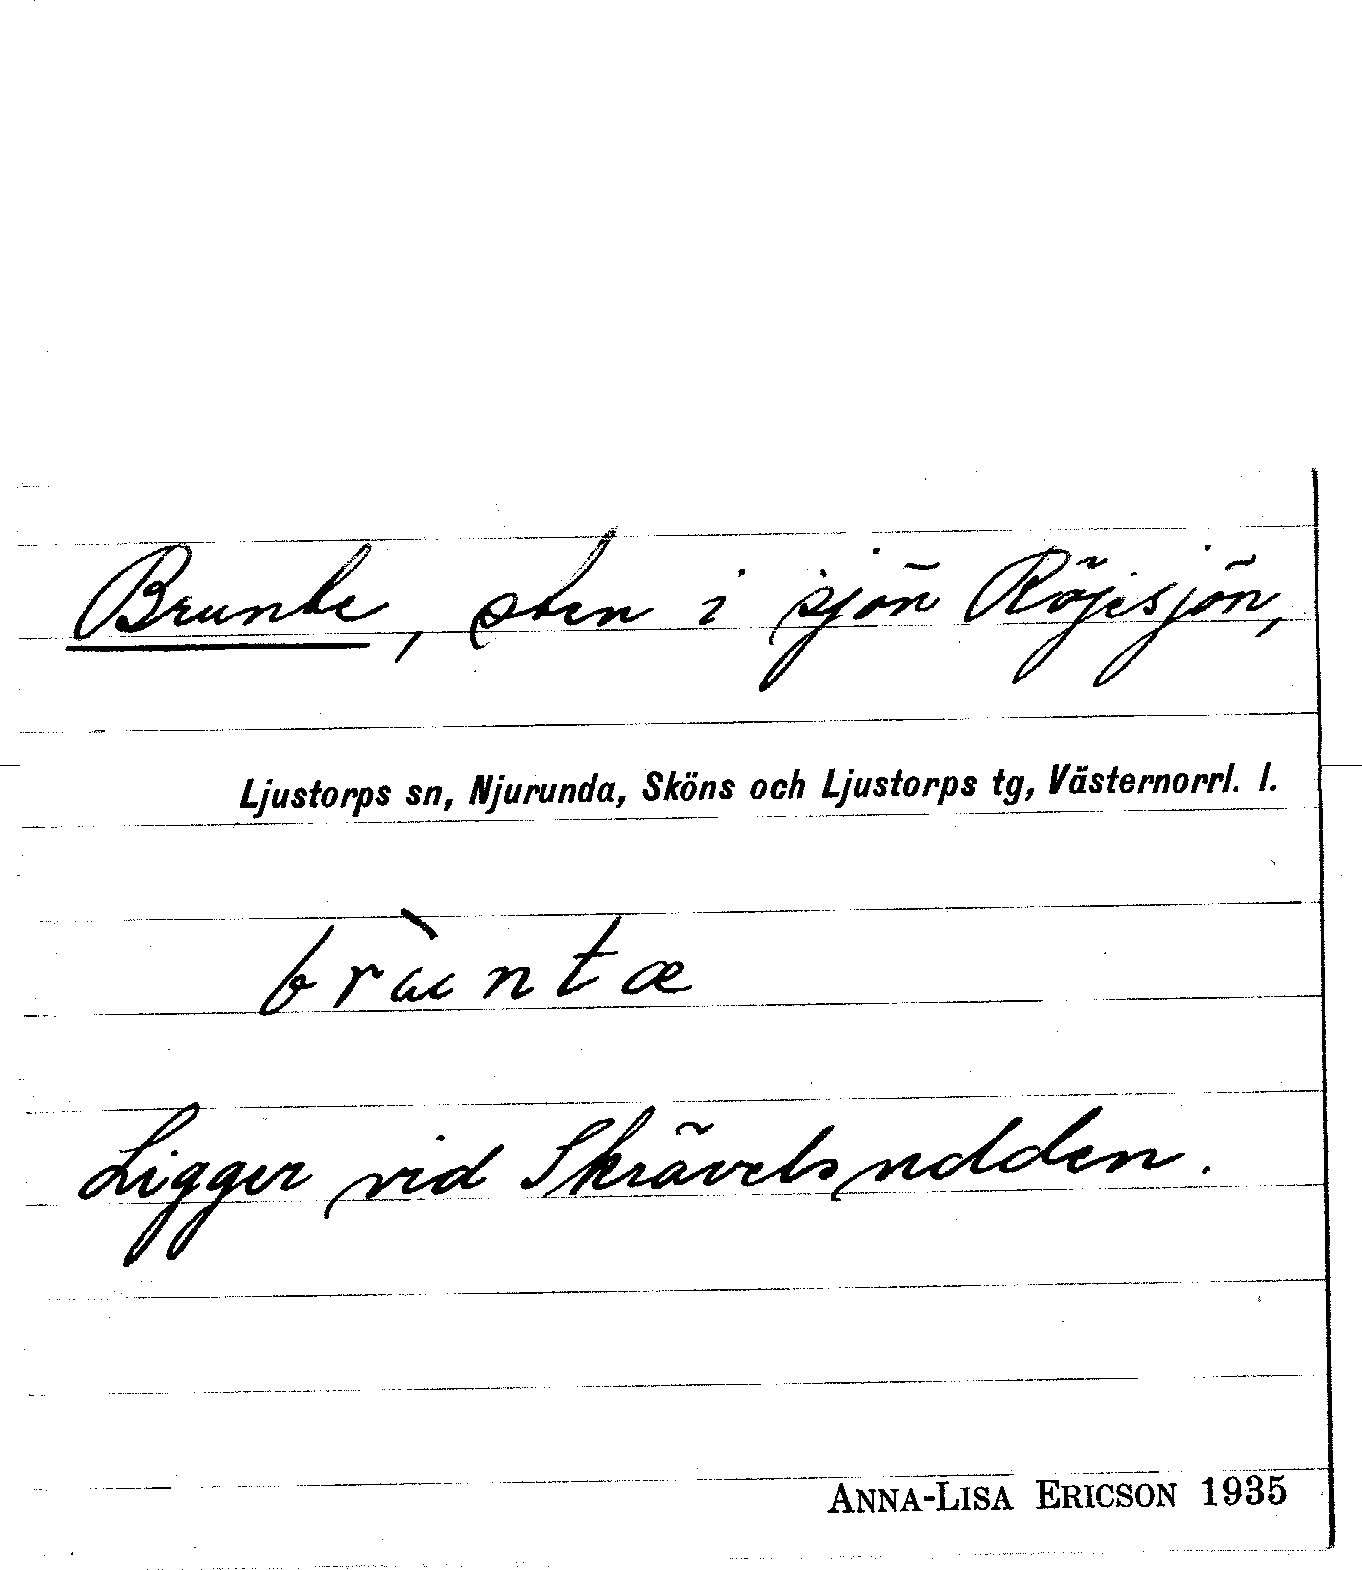 Brunte, sten i sjön Röjesjön,
Ljustorps sn, Njurunda, Sköns och Ljustorps tg, Västernorrl. l.
bràuntæ
Ligger vid Skrävelsudden.
ANNA-LISA ERICSON 1935